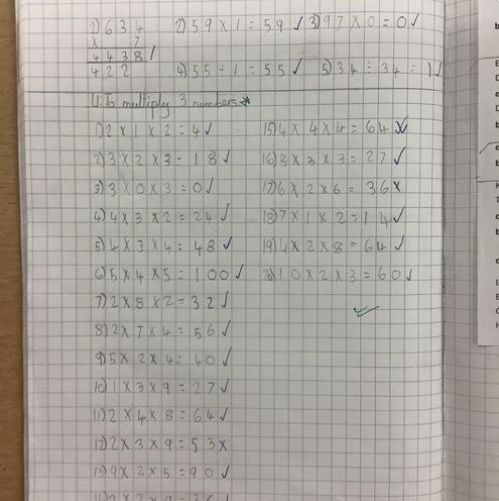 1) 634 2) 59 × 1 = 59 ✓ 3) 97 × 0 = 0 ✓
× 7
4438 ✓
422 4) 55 ÷ 1 = 55 ✓ 5) 34 ÷ 34 = 1 ✓
multiply 3 numbers *
1) 2 × 1 × 2 = 4 ✓
2) 3 × 2 × 3 = 18 ✓
3) 3 × 0 × 3 = 0 ✓
4) 4 × 3 × 2 = 24 ✓
5) 4 × 3 × 4 = 48 ✓
6) 5 × 4 × 5 = 100 ✓
7) 2 × 8 × 2 = 32 ✓
8) 2 × 7 × 4 = 56 ✓
9) 5 × 2 × 4 = 40 ✓
10) 1 × 3 × 9 = 27 ✓
11) 2 × 4 × 8 = 64 ✓
12) 2 × 3 × 9 = 53 ×
13) 9 × 2 × 5 = 90 ✓
15) 4 × 4 × 4 = 64 ✓
16) 3 × 3 × 3 = 27 ✓
17) 6 × 2 × 6 = 36 ×
18) 7 × 1 × 2 = 14 ✓
19) 4 × 2 × 8 = 64 ✓
10 × 2 × 3 = 60 ✓
✓